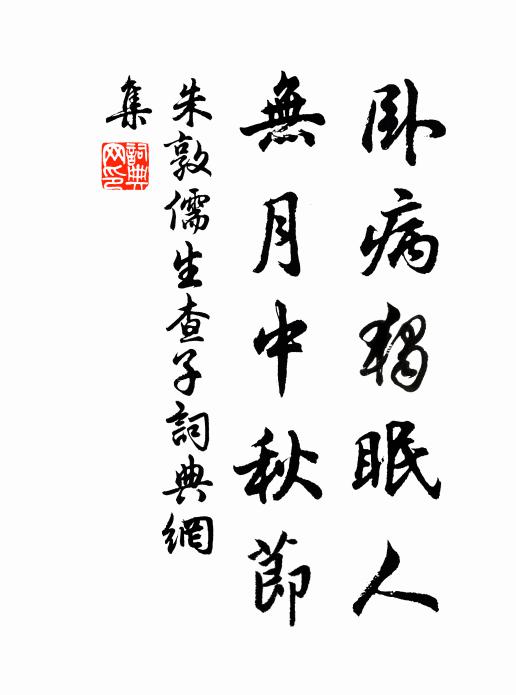 臥病獨眠人
無月中秋節
朱敦儒生查子詞典網
集
詞典網印